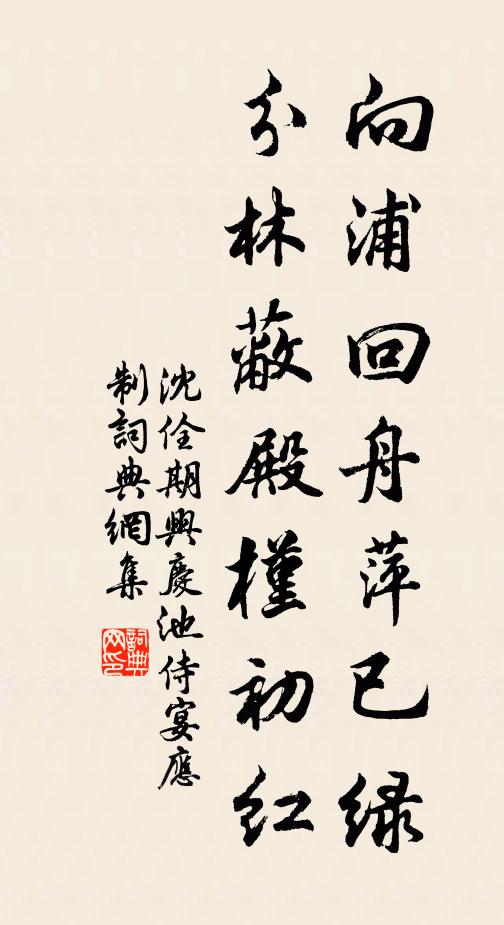 向浦回舟萍已绿
分林蔽殿槿初红
沈佺期興慶池侍宴應
制詞典網集
詞典网印